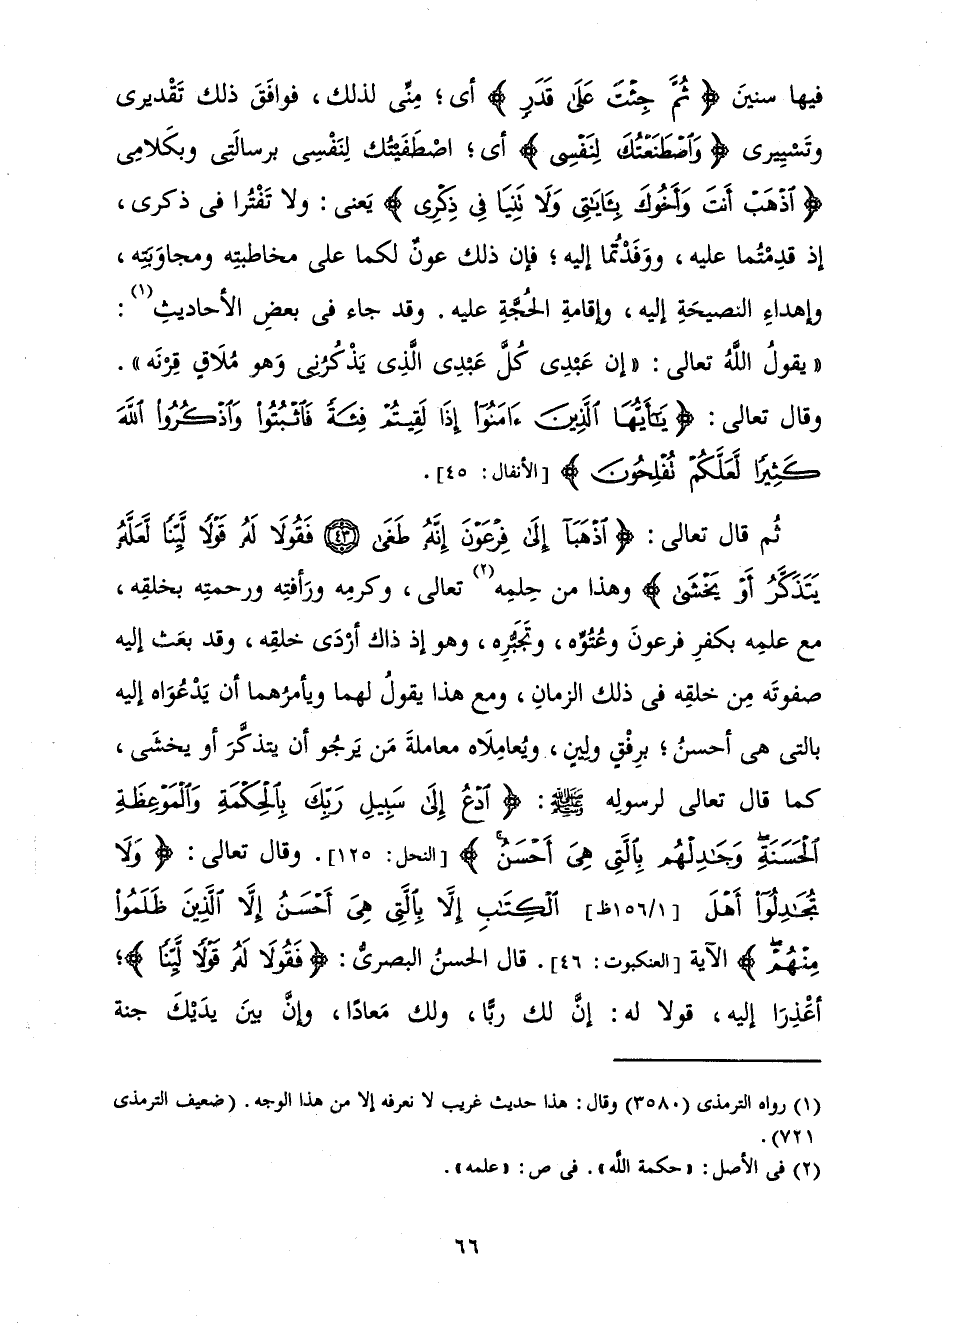 فيها سنينَ ﴿ ثُمَّ جِئْتَ عَلَىٰ قَدَرٍ ﴾ أى؛ مِنِّى لذلك، فوافَقَ ذلك تَقْديرى
وتَسْيِيرى ﴿ وَاصْطَنَعْتُكَ لِنَفْسِى ﴾ أى؛ اصْطَفَيْتُك لِنَفْسِى برسالَتِى وبكَلامِى
﴿ اذْهَبْ أَنتَ وَأَخُوكَ بِـَٔايَـٰتِى وَلَا تَنِيَا فِى ذِكْرِى ﴾ يَعنى: ولا تَفْتُرا فى ذكرى،
إذ قدِمْتُما عليه، ووَفَدْتُما إليه؛ فإن ذلك عونٌ لكما على مخاطبتِه ومجاوَبَتِه،
وإهداءِ النصيحَةِ إليه، وإقامةِ الحُجَّةِ عليه. وقد جاء فى بعضِ الأحاديثِ(١):
«يقولُ اللَّهُ تعالى: «إن عَبْدِى كُلَّ عَبْدِى الَّذِى يَذْكُرُنِى وَهو مُلَاقٍ قِرْنَه».
وقال تعالى: ﴿ يَـٰٓأَيُّهَا الَّذِينَ ءَامَنُوٓا۟ إِذَا لَقِيتُمْ فِئَةً فَاثْبُتُوا۟ وَاذْكُرُوا۟ اللَّهَ
كَثِيرًا لَّعَلَّكُمْ تُفْلِحُونَ ﴾ [الأنفال: ٤٥].
ثُم قال تعالى: ﴿ اذْهَبَآ إِلَىٰ فِرْعَوْنَ إِنَّهُۥ طَغَىٰ ٤٣ فَقُولَا لَهُۥ قَوْلًا لَّيِّنًا لَّعَلَّهُۥ
يَتَذَكَّرُ أَوْ يَخْشَىٰ ﴾ وهذا من حِلمِه(٢) تعالى، وكرمِه ورَأفتِه ورحمتِه بخلقِه،
مع علمِه بكفرِ فرعونَ وعُتُوِّه، وتَجَبُّرِه، وهو إذ ذاك أرْدَى خلقِه، وقد بعَث إليه
صفوتَه مِن خلقِه فى ذلك الزمانِ، ومع هذا يقولُ لهما ويأمرُهما أن يَدْعُوَاه إليه
بالتى هى أحسنُ؛ برِفْقٍ ولِينٍ، ويُعامِلَاه معاملةَ مَن يَرجُو أن يتذكَّرَ أو يخشَى،
كما قال تعالى لرسولِه ﷺ: ﴿ ادْعُ إِلَىٰ سَبِيلِ رَبِّكَ بِالْحِكْمَةِ وَالْمَوْعِظَةِ
الْحَسَنَةِ ۖ وَجَـٰدِلْهُم بِالَّتِى هِىَ أَحْسَنُ ۚ ﴾ [النحل: ١٢٥]. وقال تعالى: ﴿ وَلَا
تُجَـٰدِلُوٓا۟ أَهْلَ [١/١٥٦ظ] الْكِتَـٰبِ إِلَّا بِالَّتِى هِىَ أَحْسَنُ إِلَّا الَّذِينَ ظَلَمُوا۟
مِنْهُمْ ۖ ﴾ الآية [العنكبوت: ٤٦]. قال الحسنُ البصرىُّ: ﴿ فَقُولَا لَهُۥ قَوْلًا لَّيِّنًا ﴾؛
أَعْذِرَا إليه، قولا له: إنَّ لك ربًّا، ولك مَعادًا، وإنَّ بينَ يدَيْكَ جنة
(١) رواه الترمذى (٣٥٨٠) وقال: هذا حديث غريب لا نعرفه إلا من هذا الوجه. (ضعيف الترمذى
٧٢١).
(٢) فى الأصل: «حكمة اللَّه». فى ص: «علمه».
٦٦